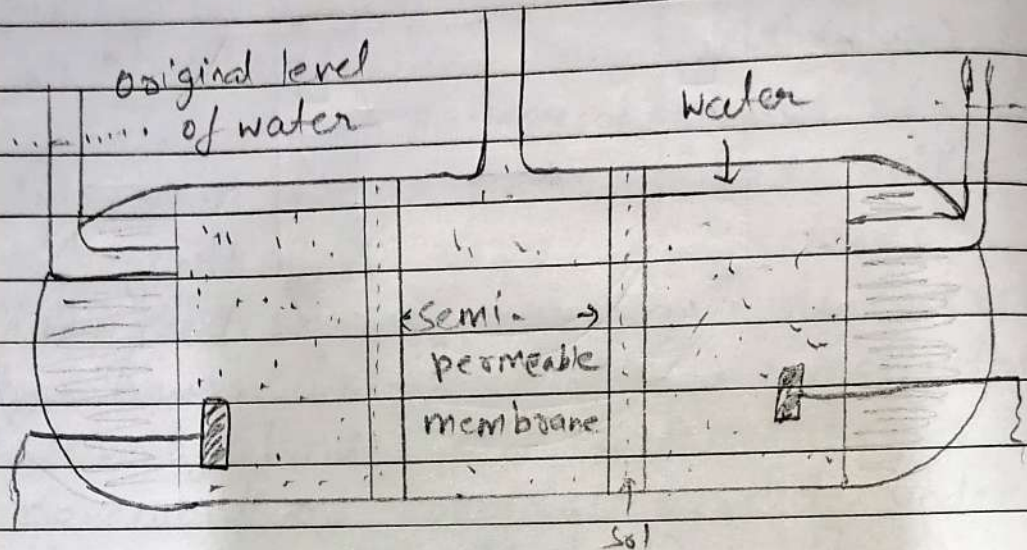 original level
of water
water
semi-
permeable
membrane
sol